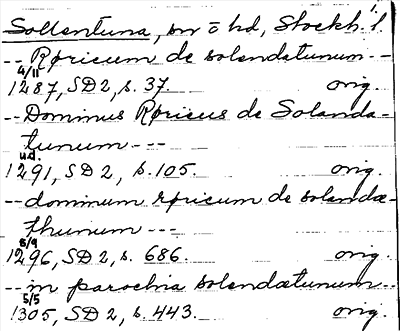 Sollentuna, sn o hd, Stockh. l.
-- Rpricum de solendatunum --
4/11
1287, SD 2, s. 37. orig.
-- Dominus Rpricus de Solanda-
tunum ---
u.d.
1291, SD 2, s. 105. orig.
-- dominum rpricum de solandæ-
thunum ---
8/9
1296, SD 2, s. 686. orig.
-- in parochia solendætunum --
5/5
1305, SD 2, s. 443. orig.